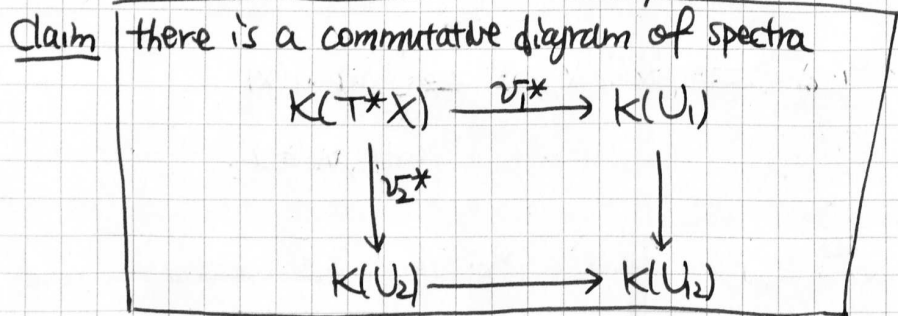 Claim there is a commutative diagram of spectra
K(T*X) v₁* K(U₁)
v₂*
K(U₂) K(U₁₂)